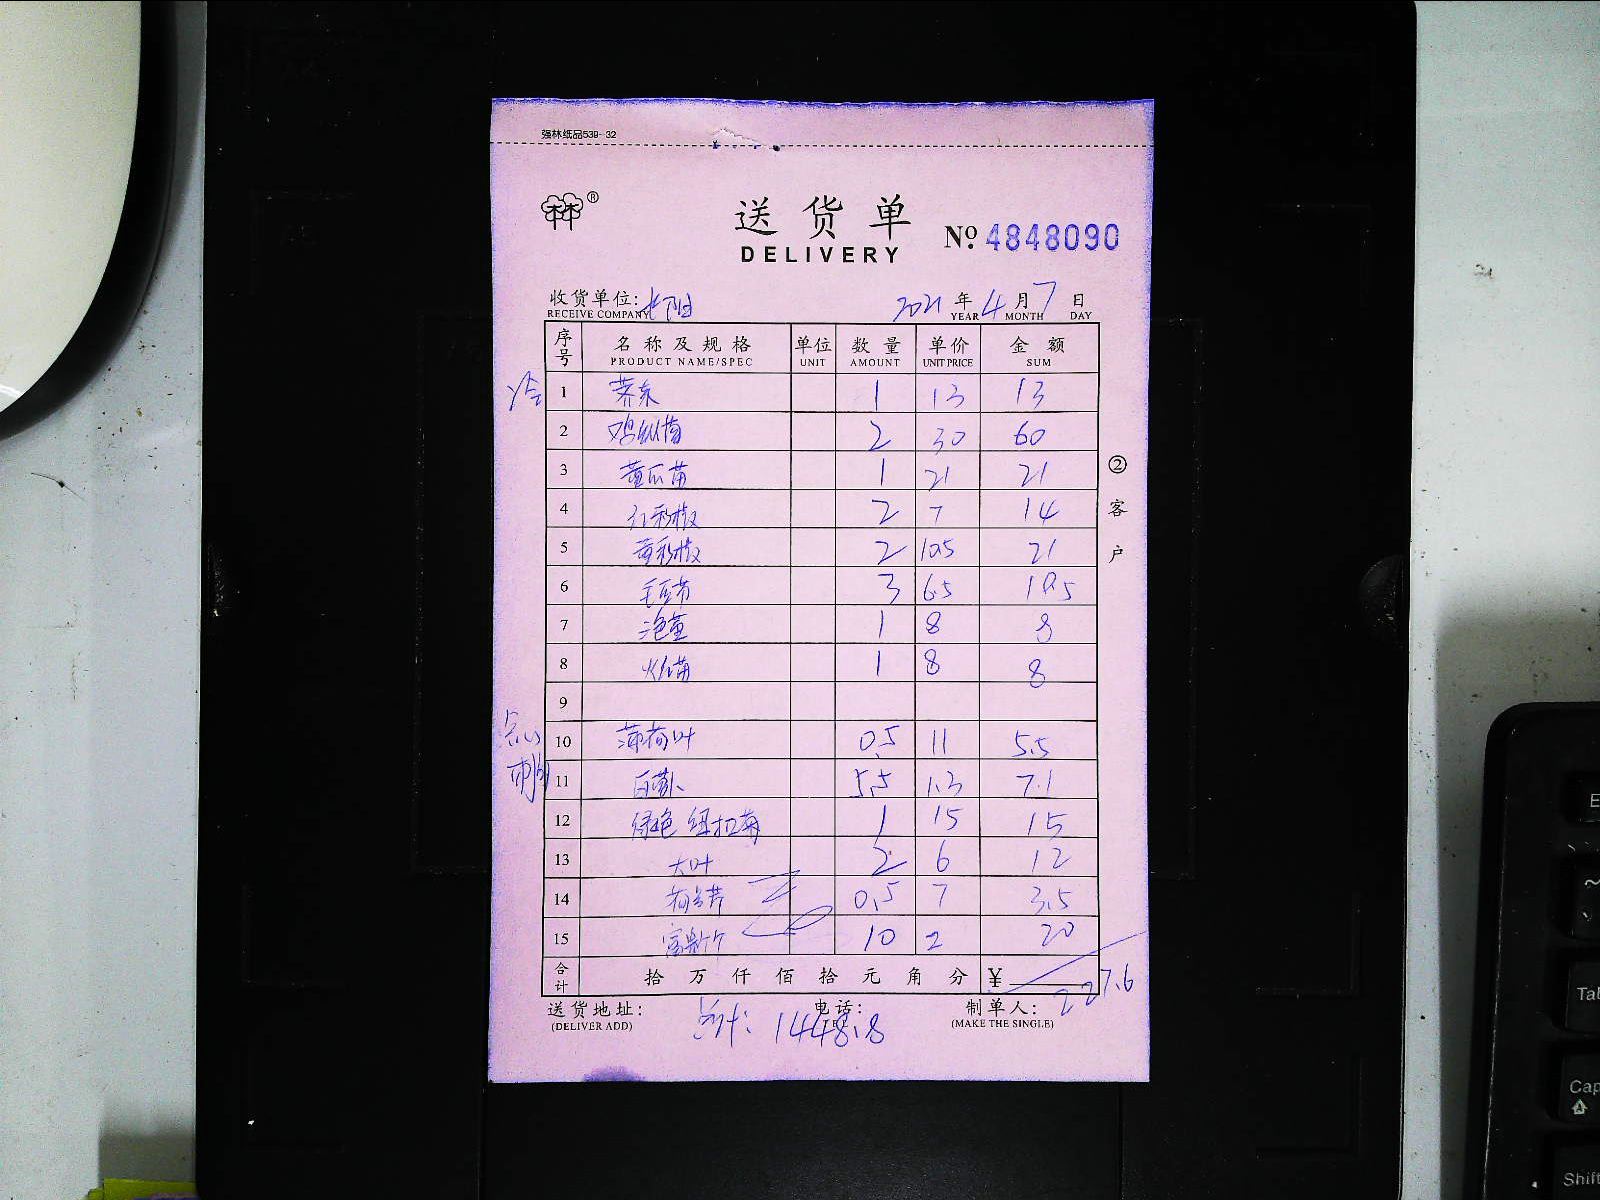 强林纸品539-32
林林®
送货单
DELIVERY
No. 4848090
收货单位:
RECEIVE COMPANY
2021 年 4 月 7 日
YEAR MONTH DAY
序号 名称及规格 单位 数量 单价 金额
PRODUCT NAME/SPEC UNIT AMOUNT UNIT PRICE SUM
冷
1 荞东 1 13 13
2 鸡纵菌 2 30 60
3 黄瓜苗 1 21 21
4 红彩椒 2 7 14
5 黄彩椒 2 10.5 21
6 毛豆节 3 6.5 19.5
7 泡姜 1 8 8
8 1 8 8
9
点心
10 薄荷叶 0.5 11 5.5
11 白萝卜 5.5 1.3 7.1
12 绿色 纽扣菊 1 15 15
13 大叶 2 6 12
14 0.5 7 3.5
15 富贵竹 10 2 20
合计 拾 万 仟 佰 拾 元 角 分 ¥ 227.6
送货地址: 电话: 制单人:
(DELIVER ADD) TEL (MAKE THE SINGLE)
总计: 1448.8
② 客户